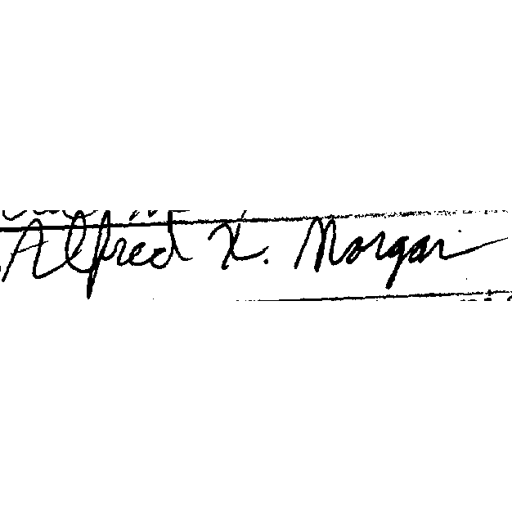 Alfred K. Morgan